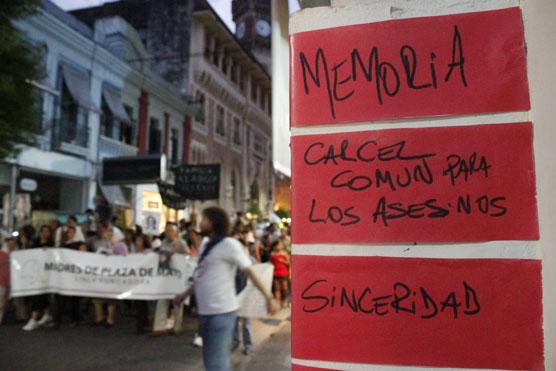 MEMORIA
CARCEL
COMUN PARA
LOS ASESINOS
SINCERIDAD
MADRES DE PLAZA DE MAYO
LINEA FUNDADORA